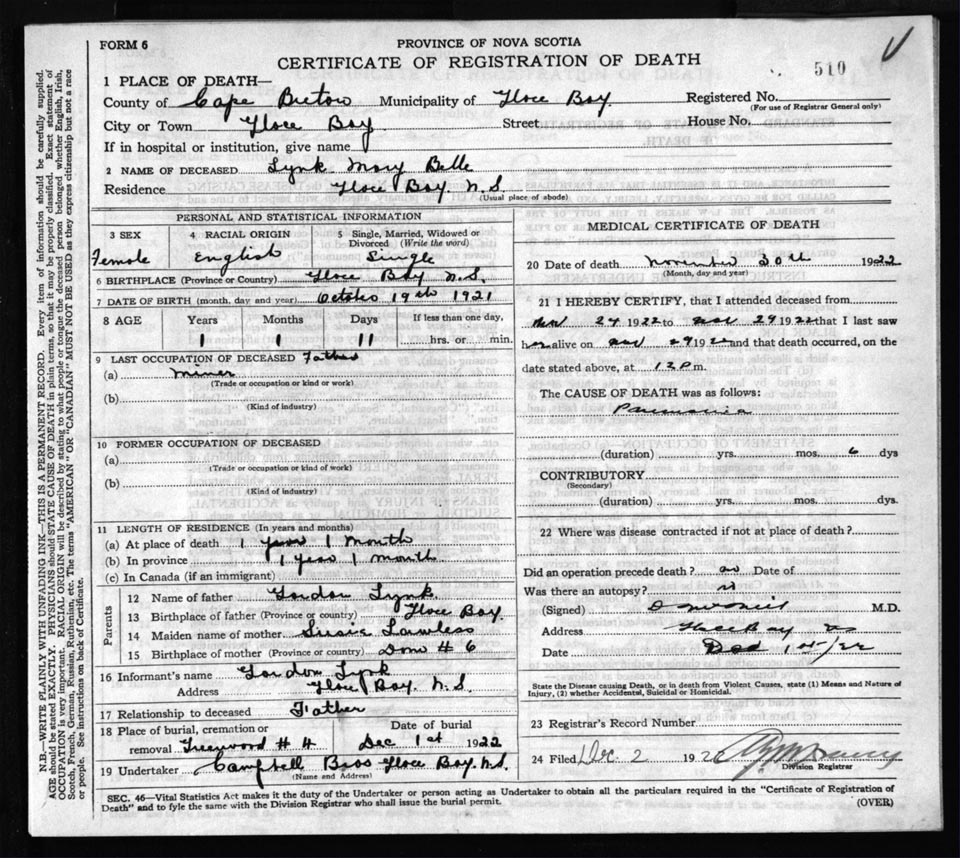 FORM 6
PROVINCE OF NOVA SCOTIA
CERTIFICATE OF REGISTRATION OF DEATH
510
1 PLACE OF DEATH—
County of Cape Breton Municipality of Glace Bay. Registered No.
(For use of Registrar General only)
City or Town Glace Bay Street House No.
If in hospital or institution, give name
2 NAME OF DECEASED Lynk Mary Belle
Residence Glace Bay N.S.
(Usual place of abode)
PERSONAL AND STATISTICAL INFORMATION
3 SEX 4 RACIAL ORIGIN 5 Single, Married, Widowed or Divorced (Write the word)
Female English Single
6 BIRTHPLACE (Province or Country) Glace Bay N.S.
7 DATE OF BIRTH (month, day and year) October 19th 1921
8 AGE Years Months Days If less than one day,
1 1 11 hrs. or min.
9 LAST OCCUPATION OF DECEASED Father
(a) Miner
(Trade or occupation or kind or work)
(b)
(Kind of industry)
10 FORMER OCCUPATION OF DECEASED
(a)
(Trade or occupation or kind of work)
(b)
(Kind of industry)
11 LENGTH OF RESIDENCE (In years and months)
(a) At place of death 1 year 1 month
(b) In province 1 year 1 month
(c) In Canada (if an immigrant)
Parents
12 Name of father Gordon Lynk.
13 Birthplace of father (Province or country) Glace Bay.
14 Maiden name of mother Susie Lawless
15 Birthplace of mother (Province or country) Dom # 6
16 Informant's name Gordon Lynk
Address Glace Bay. N.S.
17 Relationship to deceased Father
18 Place of burial, cremation or Date of burial
removal Greenwood # 4 Dec 1st 1922
19 Undertaker Campbell Bros Glace Bay. N.S.
(Name and Address)
MEDICAL CERTIFICATE OF DEATH
20 Date of death November 30th 1922
(Month, day and year)
21 I HEREBY CERTIFY, that I attended deceased from
Nov 24 1922 to Nov 29 1922 that I last saw
her alive on Nov 29 1922 and that death occurred, on the
date stated above, at 12 P m.
The CAUSE OF DEATH was as follows:
Pneumonia
(duration) yrs. mos. 6 dys
CONTRIBUTORY
(Secondary)
(duration) yrs. mos. dys.
22 Where was disease contracted if not at place of death?
Did an operation precede death? no Date of
Was there an autopsy? no
(Signed) M.D.
Address Glace Bay NS
Date Dec 1st/22
State the Disease causing Death, or in death from Violent Causes, state (1) Means and Nature of
Injury, (2) whether Accidental, Suicidal or Homicidal.
23 Registrar's Record Number
24 Filed Dec. 2 192
Division Registrar
SEC. 46—Vital Statistics Act makes it the duty of the Undertaker or person acting as Undertaker to obtain all the particulars required in the "Certificate of Registration of
Death" and to fyle the same with the Division Registrar who shall issue the burial permit. (OVER)
N.B.—WRITE PLAINLY WITH UNFADING INK—THIS IS A PERMANENT RECORD. Every item of information should be carefully supplied.
AGE should be stated EXACTLY. PHYSICIANS should STATE CAUSE OF DEATH in plain terms, so that it may be properly classified. Exact statement of
OCCUPATION is very important. RACIAL ORIGIN will be described by stating to what people or tongue the deceased person belonged, whether English, Irish,
Scotch, French, German, Russian, Ruthenian, etc. The terms "AMERICAN" OR "CANADIAN" MUST NOT BE USED as they express citizenship but not a race
or people. See instructions on back of Certificate.